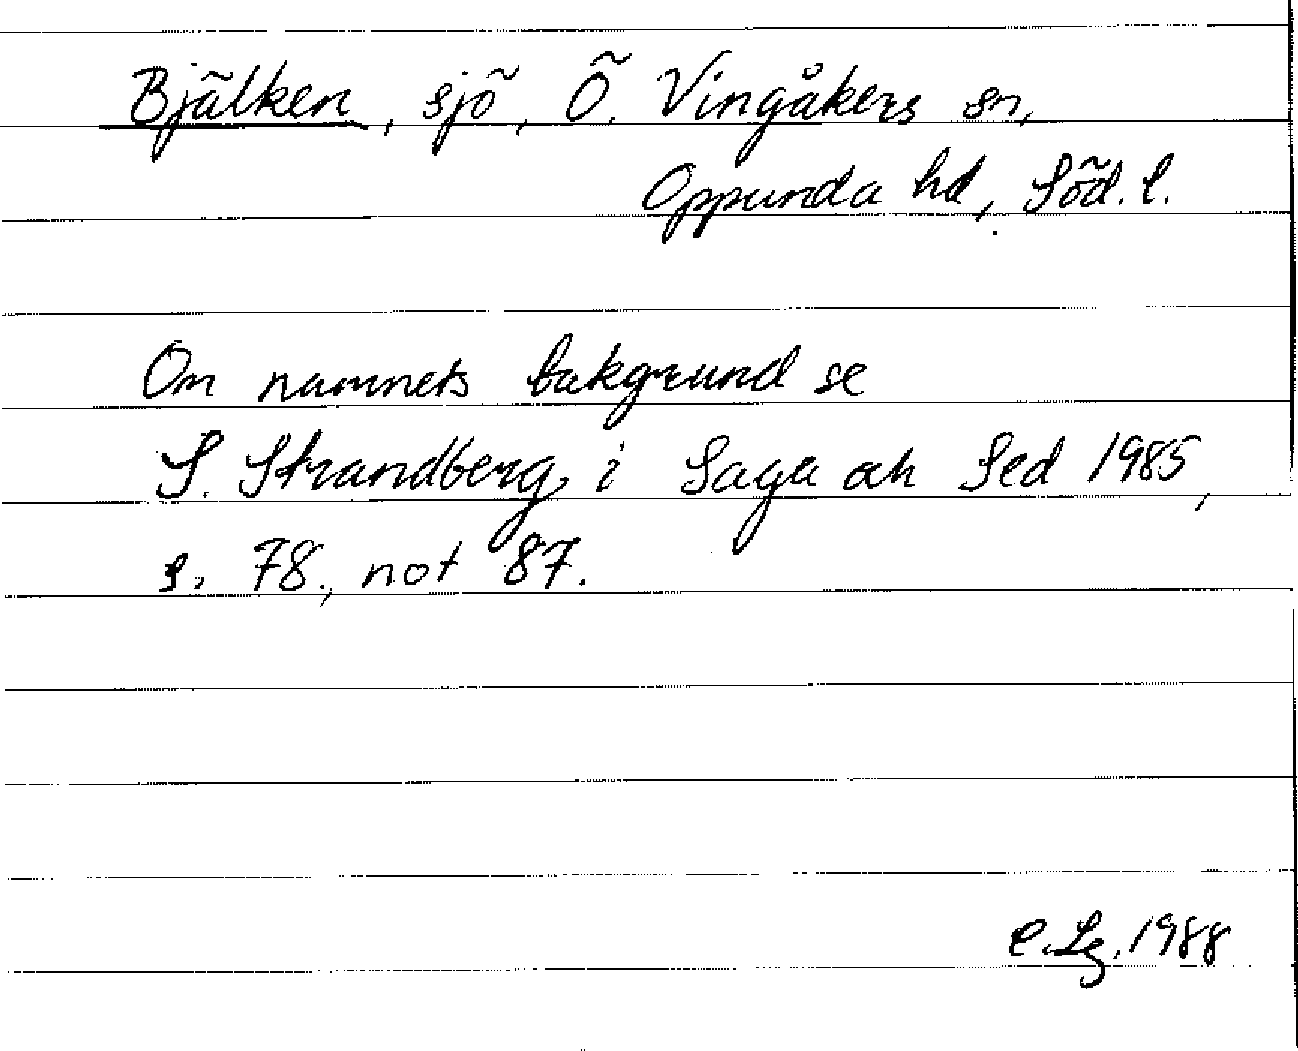 Bjälken, sjö, Ö. Vingåkers sn,
Oppunda hd, Söd. l.
Om namnets bakgrund se
S. Strandberg i Saga och Sed 1985,
s. 78, not 87.
C. Lg. 1988